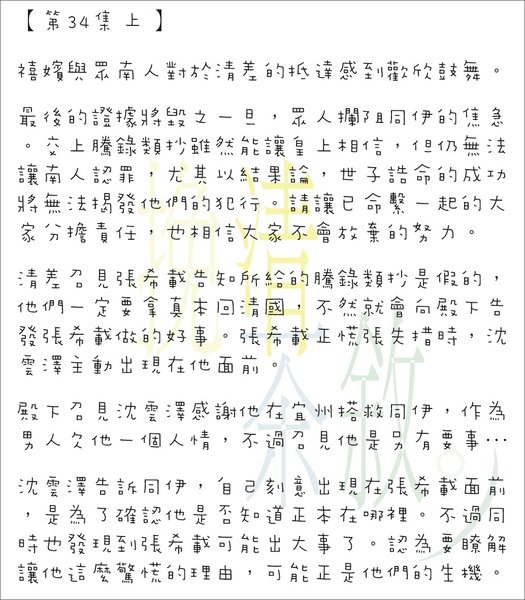 【 第34集 上 】
禧嬪與眾南人對於清差的抵達感到歡欣鼓舞。
最後的證據將毀之一旦，眾人攔阻同伊的焦急
。交上騰錄類抄雖然能讓皇上相信，但仍無法
讓南人認罪，尤其以結果論，世子誥命的成功
將無法揭發他們的犯行。請讓已命繫一起的大
家分擔責任，也相信大家不會放棄的努力。
清差召見張希載告知所給的騰錄類抄是假的，
他們一定要拿真本回清國，不然就會向殿下告
發張希載做的好事。張希載正慌張失措時，沈
雲澤主動出現在他面前。
殿下召見沈雲澤感謝他在宜州搭救同伊，作為
男人欠他一個人情，不過召見他是另有要事…
沈雲澤告訴同伊，自己刻意出現在張希載面前
，是為了確認他是否知道正本在哪裡。不過同
時也發現到張希載可能出大事了。認為要瞭解
讓他這麼驚慌的理由，可能正是他們的生機。